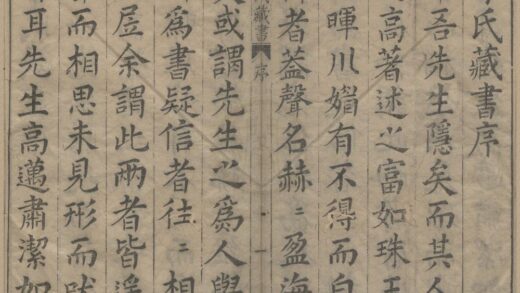 氏藏書序
吾先生隱矣而其人
高著述之富如珠玉
暉川媚有不得而自
者蓋聲名赫〻盈海
藏書
序
一
或謂先生之爲人與
爲書疑信者往〻相
余謂此兩者皆遙
而相思未見形而吠
耳先生高邁肅潔如